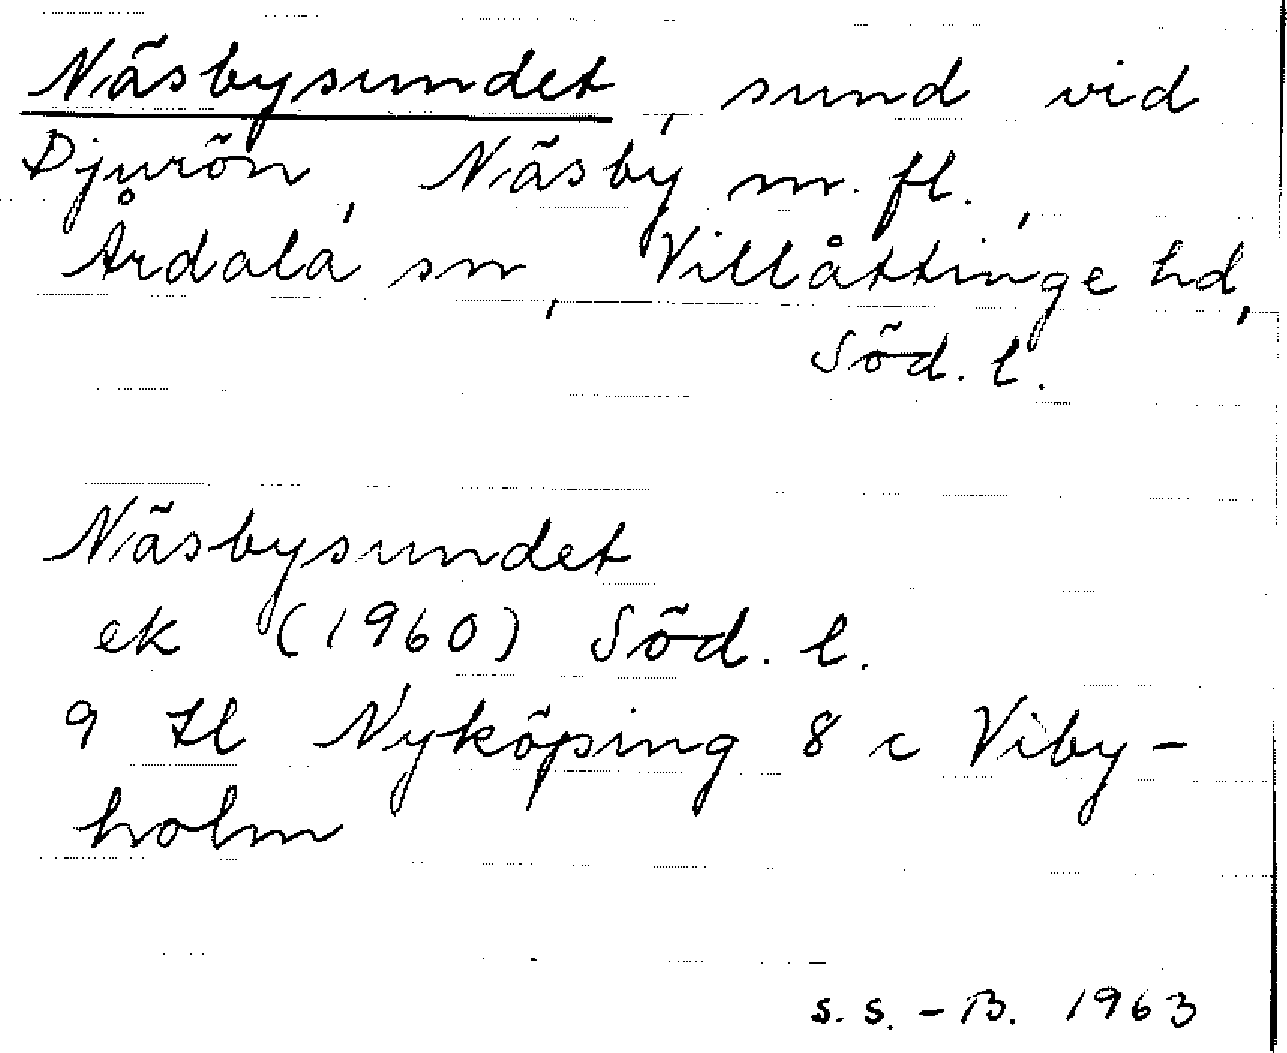 Näsbysundet, sund vid
Djurön, Näsby m. fl.,
Årdala sn, Villåttinge hd,
Söd. l.
Näsbysundet
ek (1960) Söd. l.
9 H Nyköping 8 c Viby-
holm
S. S. - B. 1963